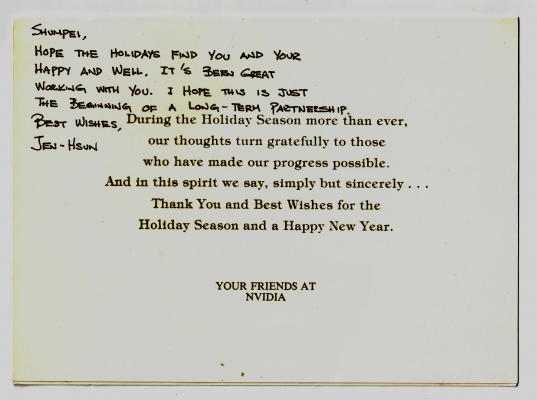 SHUMPEI,
HOPE THE HOLIDAYS FIND YOU AND YOUR
HAPPY AND WELL. IT'S BEEN GREAT
WORKING WITH YOU. I HOPE THIS IS JUST
THE BEGINNING OF A LONG-TERM PARTNERSHIP.
BEST WISHES,
JEN-HSUN
During the Holiday Season more than ever,
our thoughts turn gratefully to those
who have made our progress possible.
And in this spirit we say, simply but sincerely . . .
Thank You and Best Wishes for the
Holiday Season and a Happy New Year.
YOUR FRIENDS AT
NVIDIA